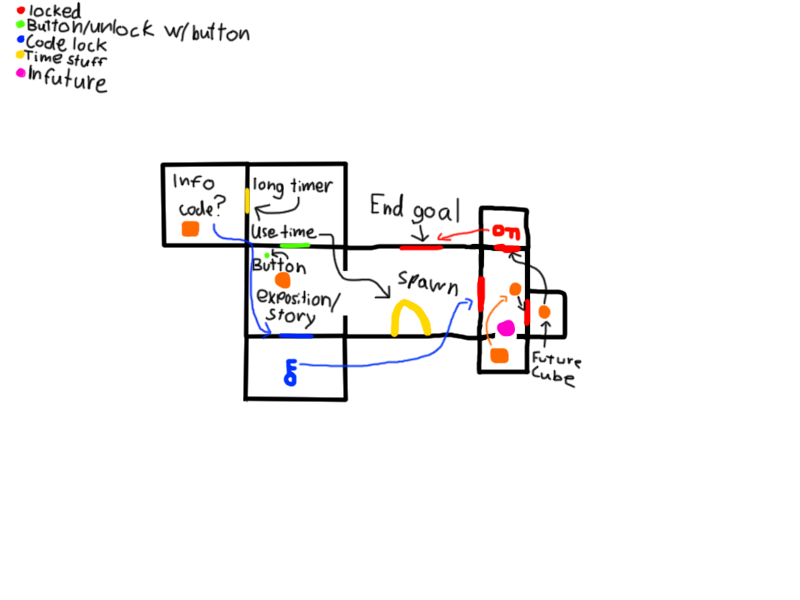 locked
Button/unlock w/button
Code lock
Time stuff
Infuture
Info
code?
long timer
Use time
End goal
Button
exposition/
story
spawn
Future
Cube